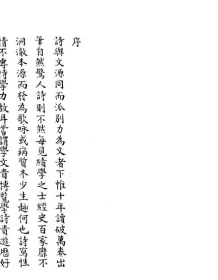 序
詩與文源同而派別力為文者下惟十年讀破萬卷出
筆自然驚人詩則不然每見績學之士經史百家靡不
洞澈本源而發為歌咏或病質木少生趣何也詩寫性
情不專恃學力故耳嘗謂學文貴博覽學詩貴遊歷好